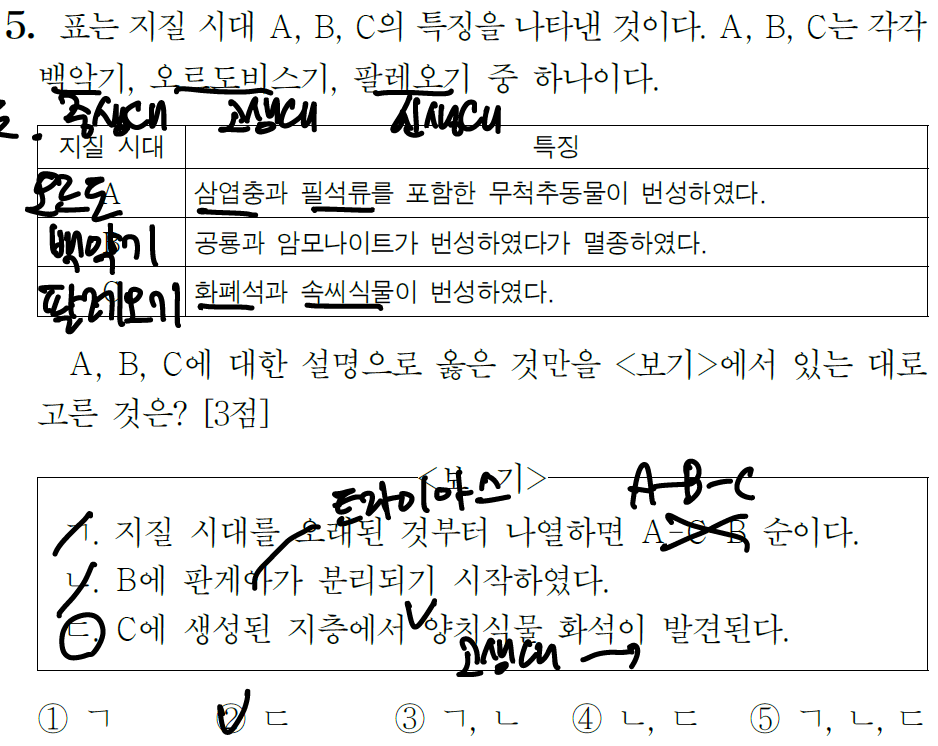 5. 표는 지질 시대 A, B, C의 특징을 나타낸 것이다. A, B, C는 각각
백악기, 오르도비스기, 팔레오기 중 하나이다.
중생대 고생대 신생대
지질 시대 특징
오르도 A 삼엽충과 필석류를 포함한 무척추동물이 번성하였다.
백악기 B 공룡과 암모나이트가 번성하였다가 멸종하였다.
팔레오기 C 화폐석과 속씨식물이 번성하였다.
A, B, C에 대한 설명으로 옳은 것만을 <보기>에서 있는 대로
고른 것은? [3점]
<보 기>
A-B-C
트라이아스
ㄱ. 지질 시대를 오래된 것부터 나열하면 A-C-B 순이다.
ㄴ. B에 판게아가 분리되기 시작하였다.
ㄷ. C에 생성된 지층에서 양치식물 화석이 발견된다.
고생대 →
① ㄱ ② ㄷ ③ ㄱ, ㄴ ④ ㄴ, ㄷ ⑤ ㄱ, ㄴ, ㄷ